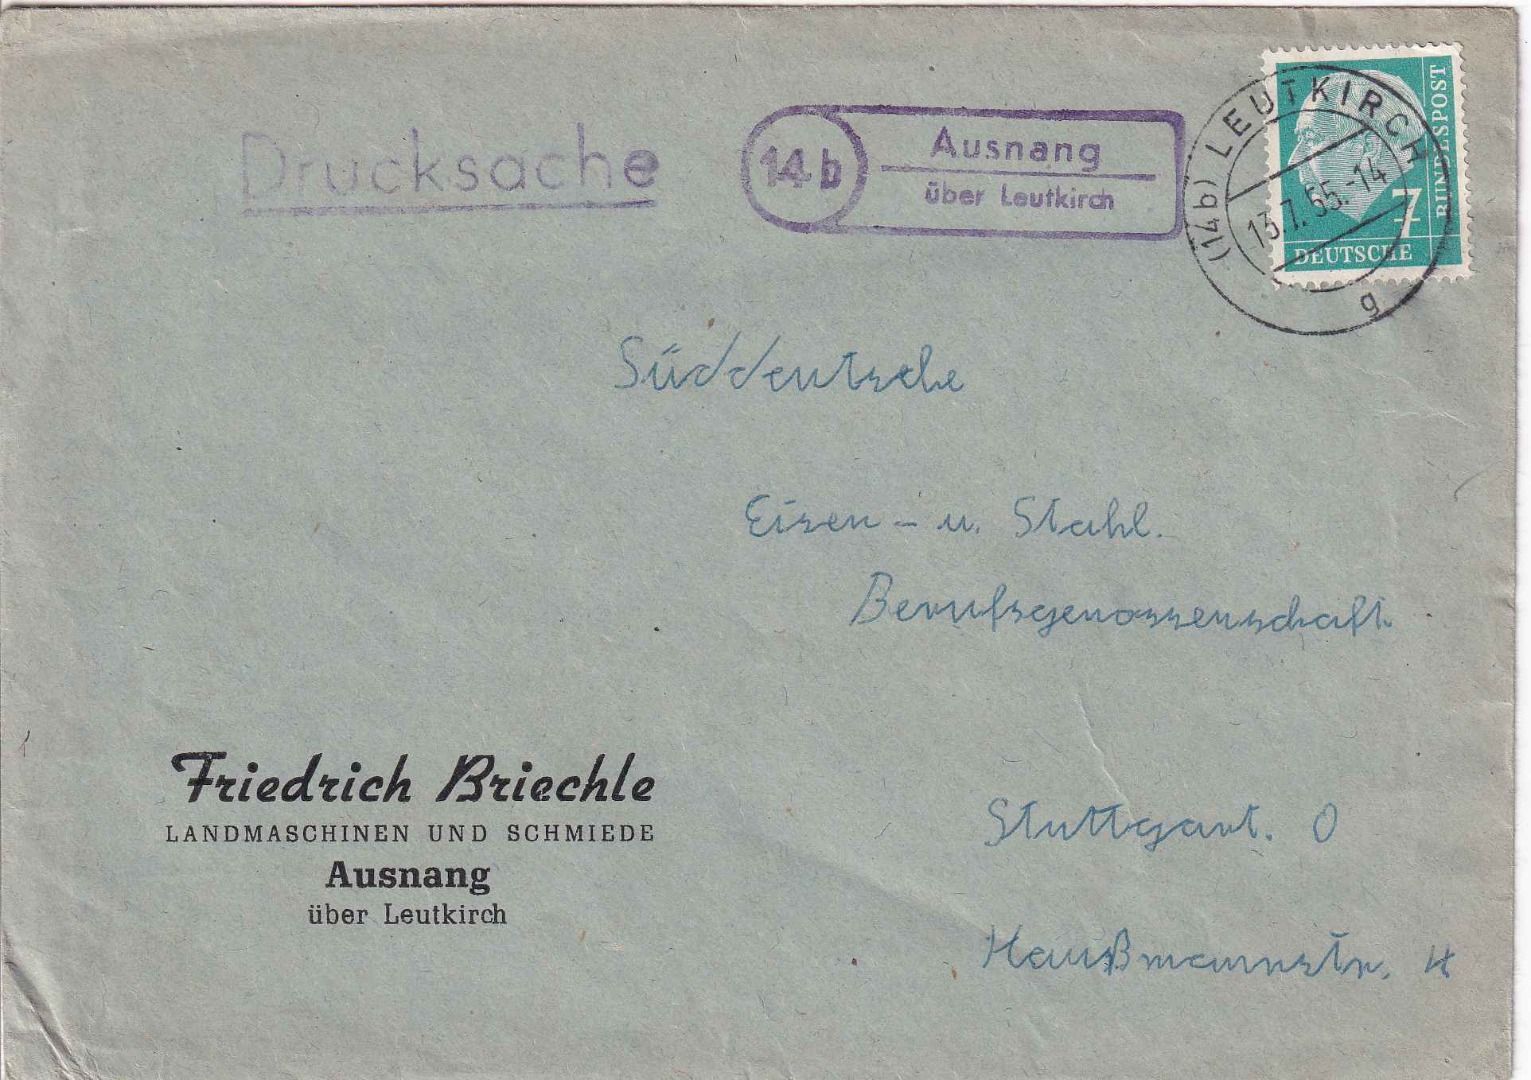 Drucksache
14b
Ausnang
über Leutkirch
(14b) LEUTKIRCH
13.7.55.-14
g
7
DEUTSCHE
BUNDESPOST
Süddeutsche
Eisen - u. Stahl.
Berufsgenossenschaft.
Friedrich Briechle
LANDMASCHINEN UND SCHMIEDE
Ausnang
über Leutkirch
Stuttgart. O
Haußmannstr. 4